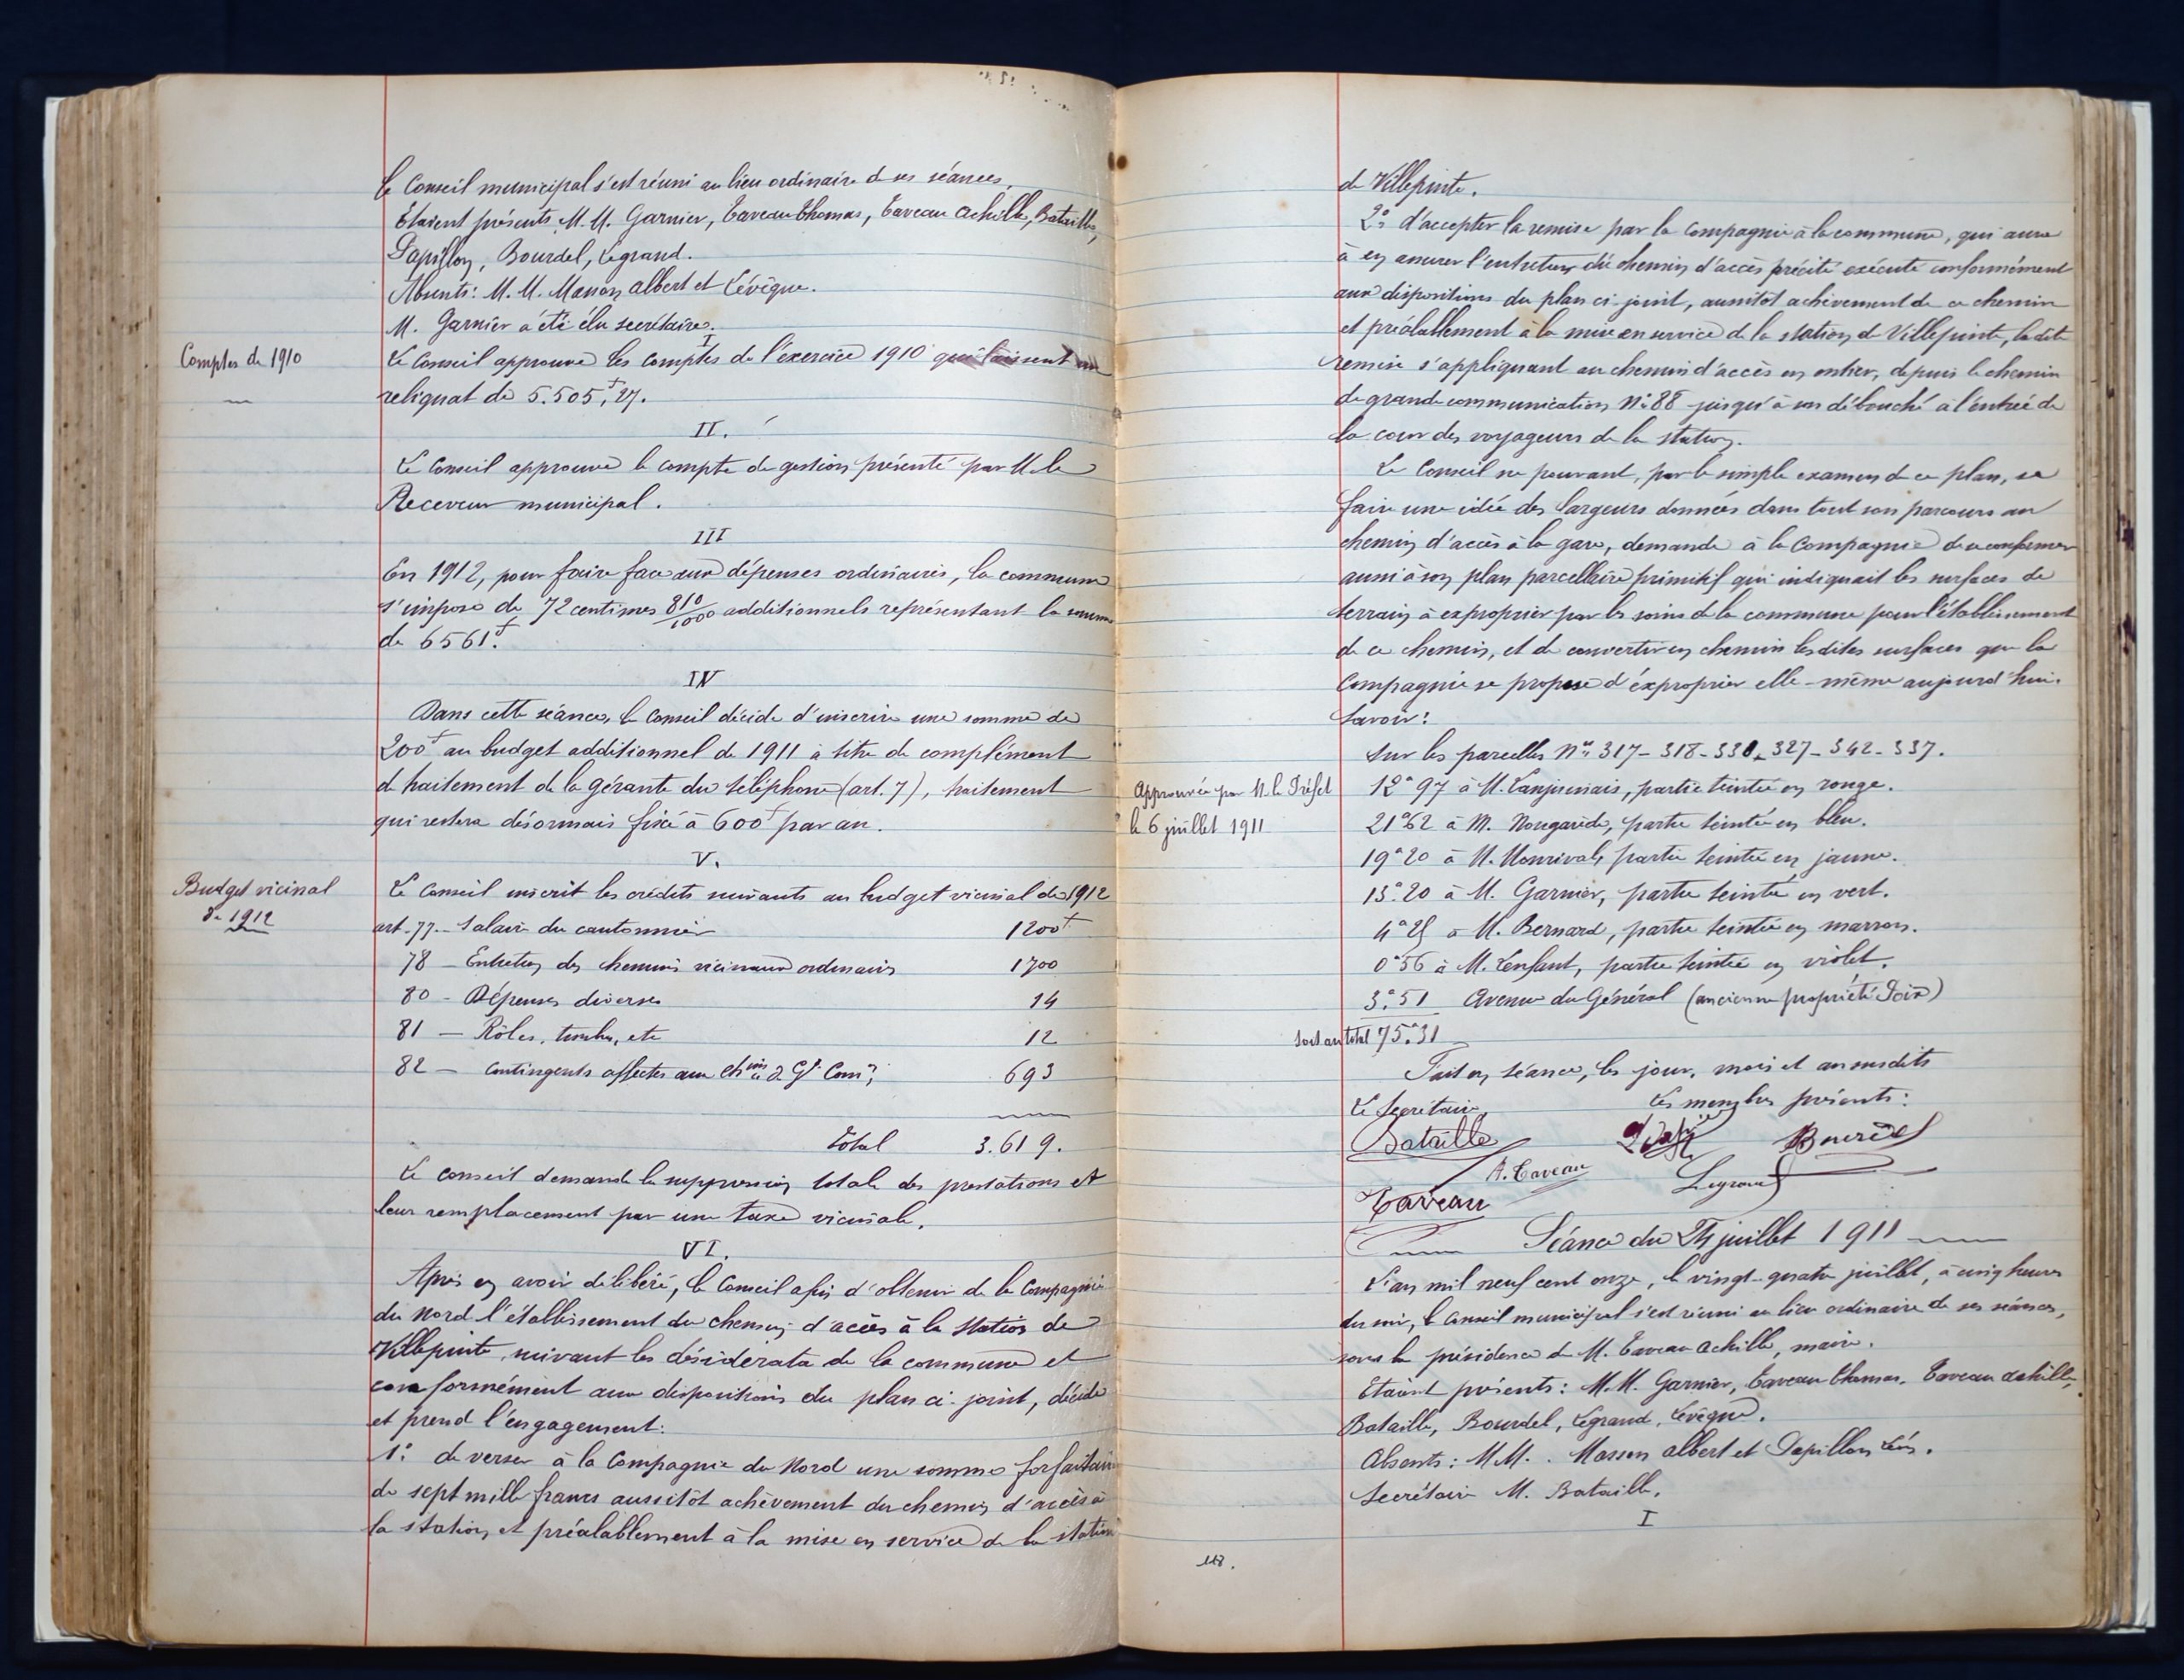 Le Conseil municipal s'est réuni au lieu ordinaire de ses séances,
Etaient présents M.M. Garnier, Taveau Thomas, Taveau Achille, Bataille,
Papillon, Bourdel, Legrand.
Absents: M.M. Masson Albert et Lévêque.
M. Garnier a été élu secrétaire.
I
Comptes de 1910
Le Conseil approuve les comptes de l'exercice 1910 qui laissent un
reliquat de 5.505f,27.
II.
Le Conseil approuve le compte de gestion présenté par M. le
Receveur municipal.
III
En 1912, pour faire face aux dépenses ordinaires, la commune
s'impose de 72 centimes 810/1000 additionnels représentant la somme
de 6561f.
IV
Dans cette séance, le Conseil décide d'inscrire une somme de
200f au budget additionnel de 1911 à titre de complément
de traitement de la gérante du téléphone (art. 7), traitement
qui restera désormais fixé à 600f par an.
V.
Budget vicinal
de 1912
Le Conseil inscrit les crédits suivants au budget vicinal de 1912
art. 77. - Salaire du cantonnier 1200f
78 - Entretien des chemins vicinaux ordinaires 1700
80 - Dépenses diverses 14
81 - Rôles, timbres, etc 12
82 - Contingents affectés aux chins de Gde Comon 693
Total 3.619.
Le conseil demande la suppression totale des prestations et
leur remplacement par une taxe vicinale.
VI.
Après en avoir délibéré, le Conseil afin d'obtenir de la Compagnie
du Nord l'établissement du chemin d'accès à la station de
Villepinte, suivant les désiderata de la commune et
conformément aux dispositions du plan ci-joint, décide
et prend l'engagement:
1º. de verser à la Compagnie du Nord une somme forfaitaire
de sept mille francs aussitôt achèvement du chemin d'accès à
la station, et préalablement à la mise en service de la station
de Villepinte.
2º. d'accepter la remise par la Compagnie à la commune, qui aura
à en assurer l'entretien du chemin d'accès précité exécuté conformément
aux dispositions du plan ci-joint, aussitôt achèvement de ce chemin
et préalablement à la mise en service de la station de Villepinte, ladite
remise s'appliquant au chemin d'accès en entier, depuis le chemin
de grande communication Nº 88 jusqu'à son débouché à l'entrée de
la cour des voyageurs de la station.
Le Conseil ne pouvant, par le simple examen de ce plan, se
faire une idée des largeurs données dans tout son parcours au
chemin d'accès à la gare, demande à la Compagnie de se conformer
aussi à son plan parcellaire primitif qui indiquait les surfaces de
terrain à exproprier par les soins de la commune pour l'établissement
de ce chemin, et de convertir en chemin lesdites surfaces que la
Compagnie se propose d'exproprier elle-même aujourd'hui.
Savoir:
Sur les parcelles Nos 317 - 318 - 330 - 327 - 342 - 337.
Approuvée par M. le Préfet
le 6 juillet 1911
12a 97 à M. Lanjuinais, partie teintée en rouge.
21a 62 à M. Nougarède, partie teintée en bleu.
19a 20 à M. Monrival, partie teintée en jaune.
13a. 20 à M. Garnier, partie teintée en vert.
4a 25 à M. Bernard, partie teintée en marron.
0a 56 à M. Lenfant, partie teintée en violet.
3a. 51 Avenue du Général (ancienne propriété Foix)
Soit au total 75a. 31
Fait en séance, les jour, mois et an susdits
Le Secrétaire, Les membres présents:
Bataille Bourdel
A. Taveau Legrand
Taveau
Séance du 24 juillet 1911
L'an mil neuf cent onze, le vingt-quatre juillet, à cinq heures
du soir, le Conseil municipal s'est réuni au lieu ordinaire de ses séances,
sous la présidence de M. Taveau Achille, maire.
Etaient présents: M.M. Garnier, Taveau Thomas, Taveau Achille,
Bataille, Bourdel, Legrand, Lévêque.
Absents: M.M. Masson Albert et Papillon Léon.
Secrétaire M. Bataille.
I
118.